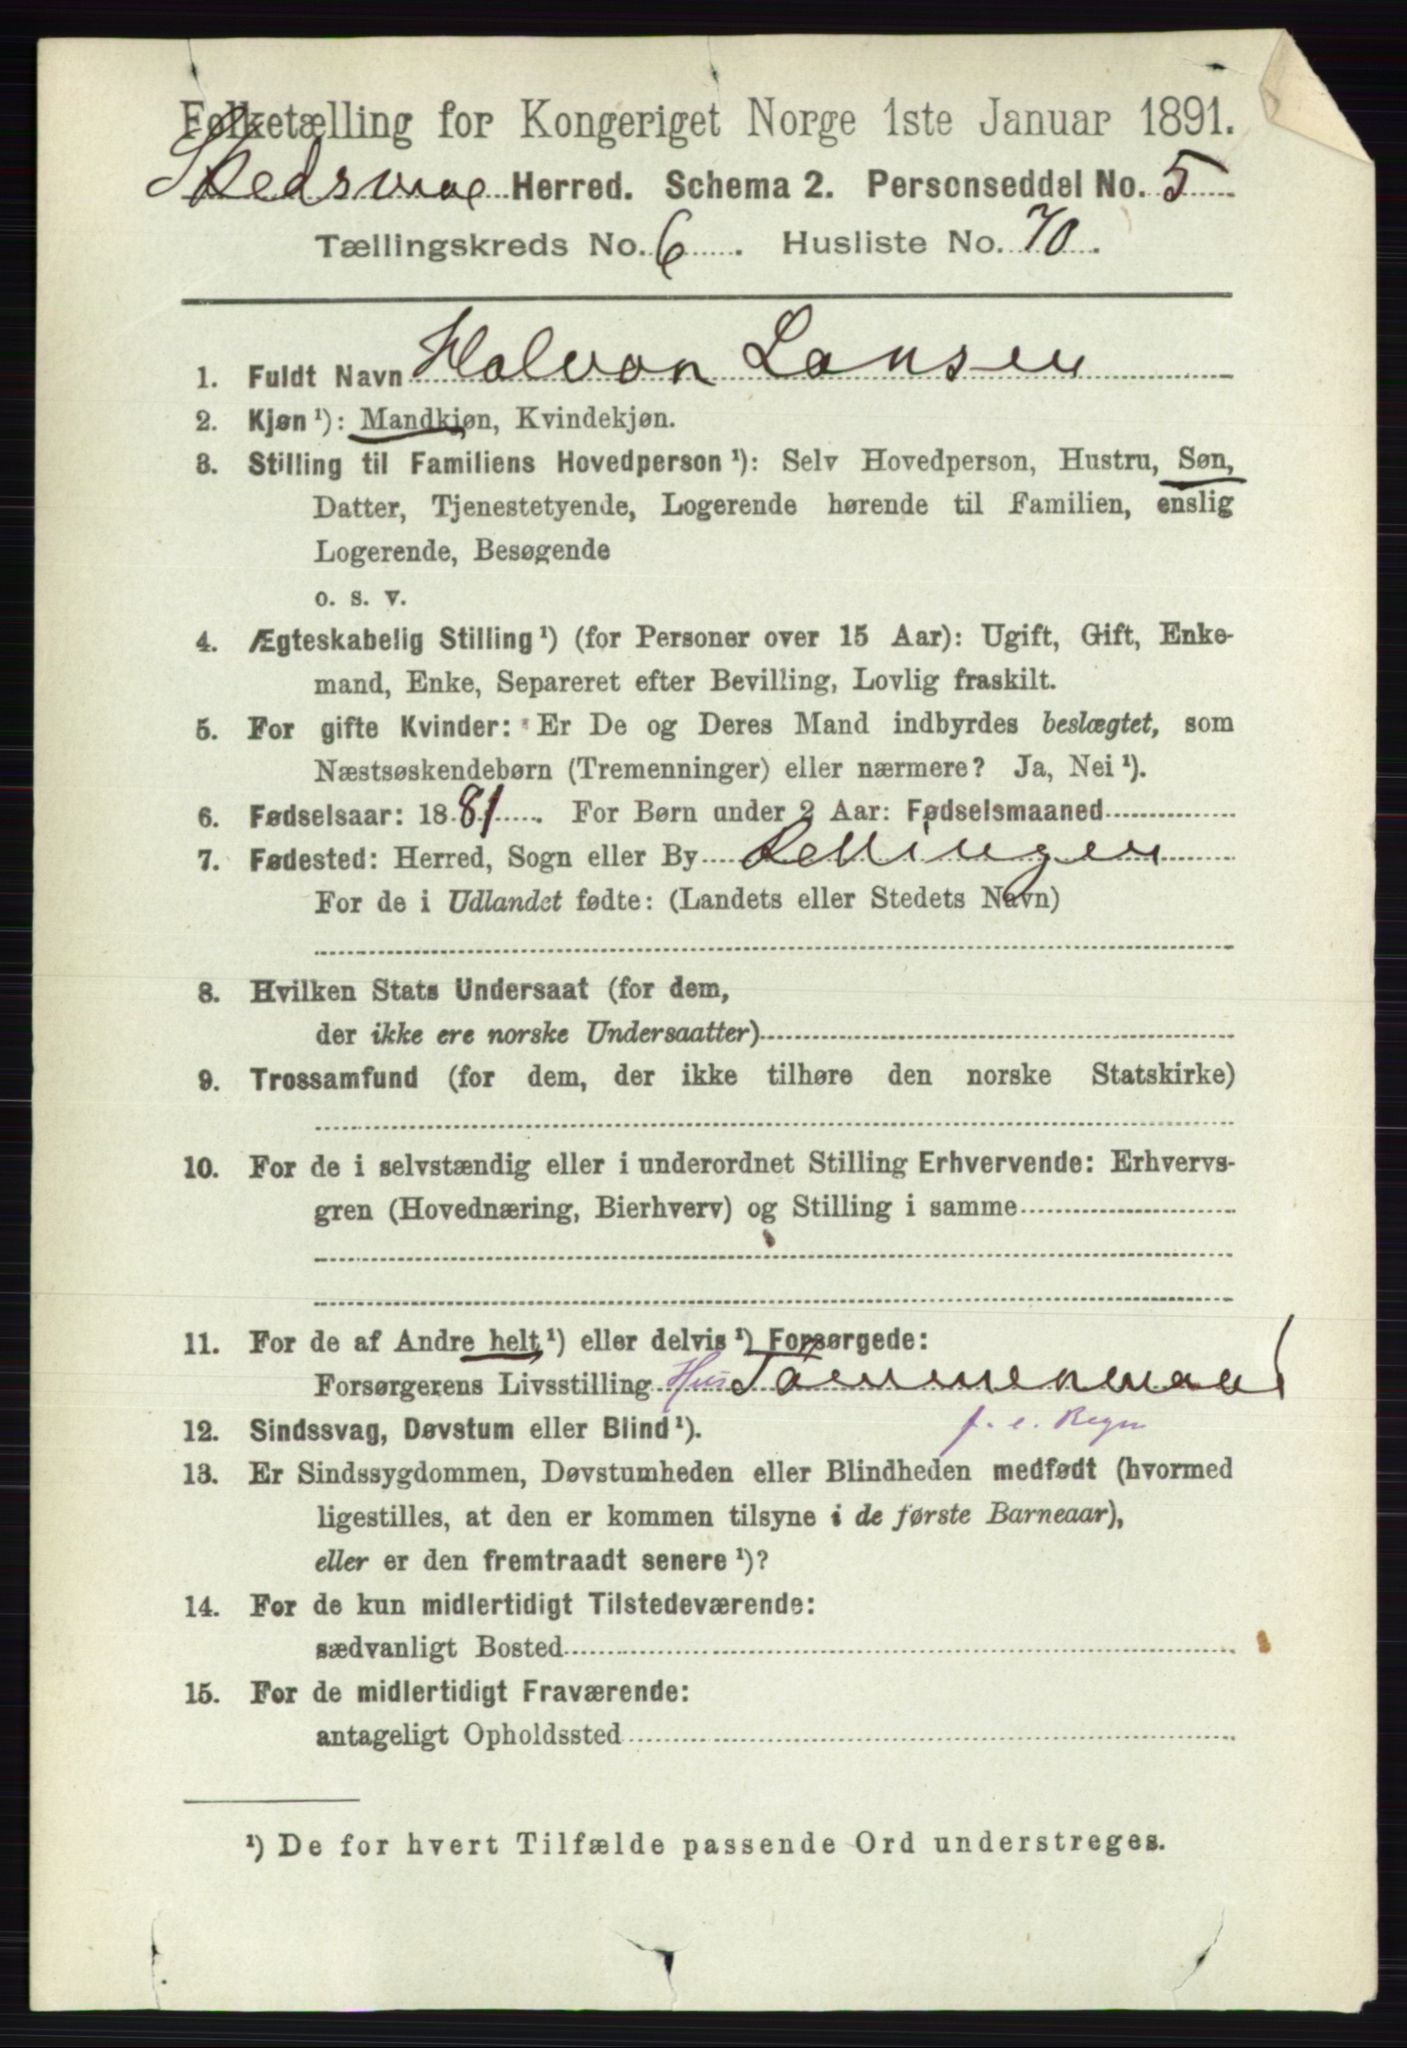 Folketælling for Kongeriget Norge 1ste Januar 1891.
Skedsmoe Herred. Schema 2. Personseddel No. 5
Tællingskreds No. 6. Husliste No. 70.
1. Fuldt Navn Halvor Larsen
2. Kjøn ¹): Mandkjøn, Kvindekjøn.
3. Stilling til Familiens Hovedperson ¹): Selv Hovedperson, Hustru, Søn,
Datter, Tjenestetyende, Logerende hørende til Familien, enslig
Logerende, Besøgende
o. s. v.
4. Ægteskabelig Stilling ¹) (for Personer over 15 Aar): Ugift, Gift, Enke-
mand, Enke, Separeret efter Bevilling, Lovlig fraskilt.
5. For gifte Kvinder: Er De og Deres Mand indbyrdes beslægtet, som
Næstsøskendebørn (Tremenninger) eller nærmere? Ja, Nei ¹).
6. Fødselsaar: 1881. For Børn under 2 Aar: Fødselsmaaned
7. Fødested: Herred, Sogn eller By Rellingen
For de i Udlandet fødte: (Landets eller Stedets Navn)
8. Hvilken Stats Undersaat (for dem,
der ikke ere norske Undersaatter)
9. Trossamfund (for dem, der ikke tilhøre den norske Statskirke)
10. For de i selvstændig eller i underordnet Stilling Erhvervende: Erhvervs-
gren (Hovednæring, Bierhverv) og Stilling i samme
11. For de af Andre helt ¹) eller delvis ¹) Forsørgede:
Forsørgerens Livsstilling Hus Tømmermand
f. e. Regn
12. Sindssvag, Døvstum eller Blind ¹).
13. Er Sindssygdommen, Døvstumheden eller Blindheden medfødt (hvormed
ligestilles, at den er kommen tilsyne i de første Barneaar),
eller er den fremtraadt senere ¹)?
14. For de kun midlertidigt Tilstedeværende:
sædvanligt Bosted
15. For de midlertidigt Fraværende:
antageligt Opholdssted
¹) De for hvert Tilfælde passende Ord understreges.